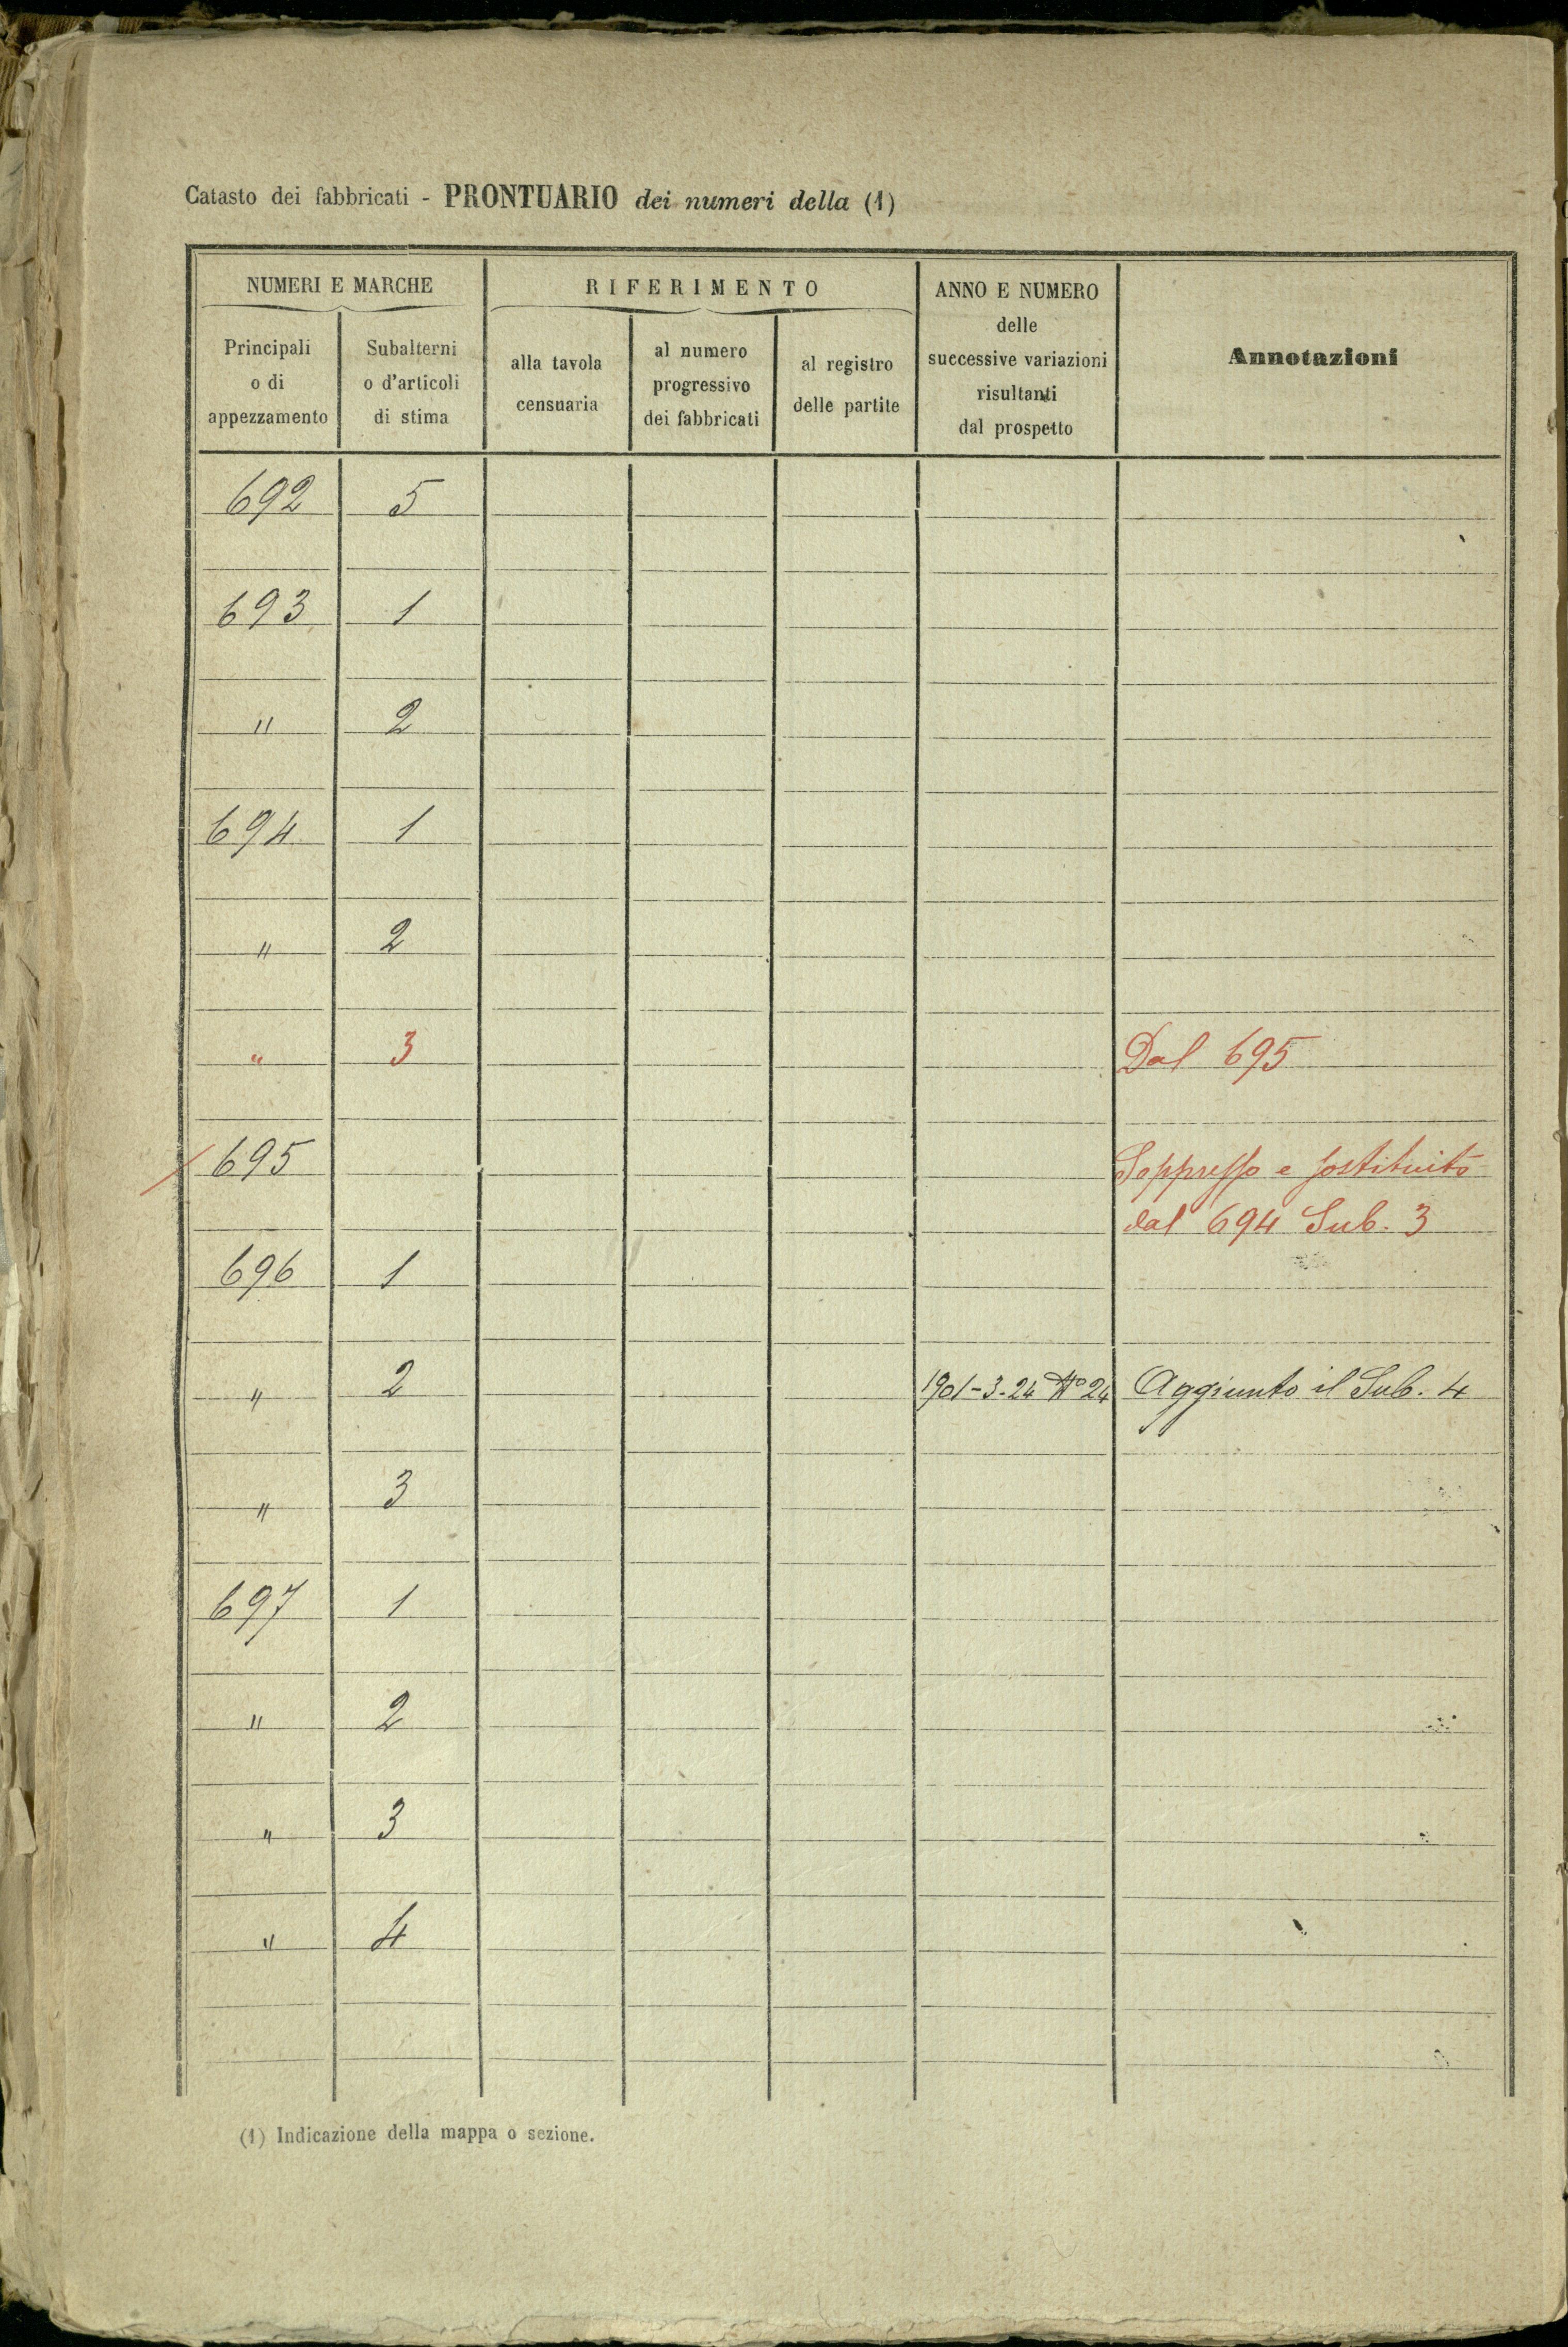 Catasto dei fabbricati - PRONTUARIO dei numeri della (1)
NUMERI E MARCHE
RIFERIMENTO
ANNO E NUMERO
delle
successive variazioni
risultanti
dal prospetto
Annotazioni
Principali
o di
appezzamento
Subalterni
o d'articoli
di stima
alla tavola
censuaria
al numero
progressivo
dei fabbricati
al registro
delle partite
692 5
693 1
" 2
694 1
" 2
" 3 Dal 695
695 Soppresso e sostituito
dal 694 Sub. 3
696 1
" 2 1901-3-24 No 24 Aggiunto il Sub. 4
" 3
697 1
" 2
" 3
" 4
(1) Indicazione della mappa o sezione.